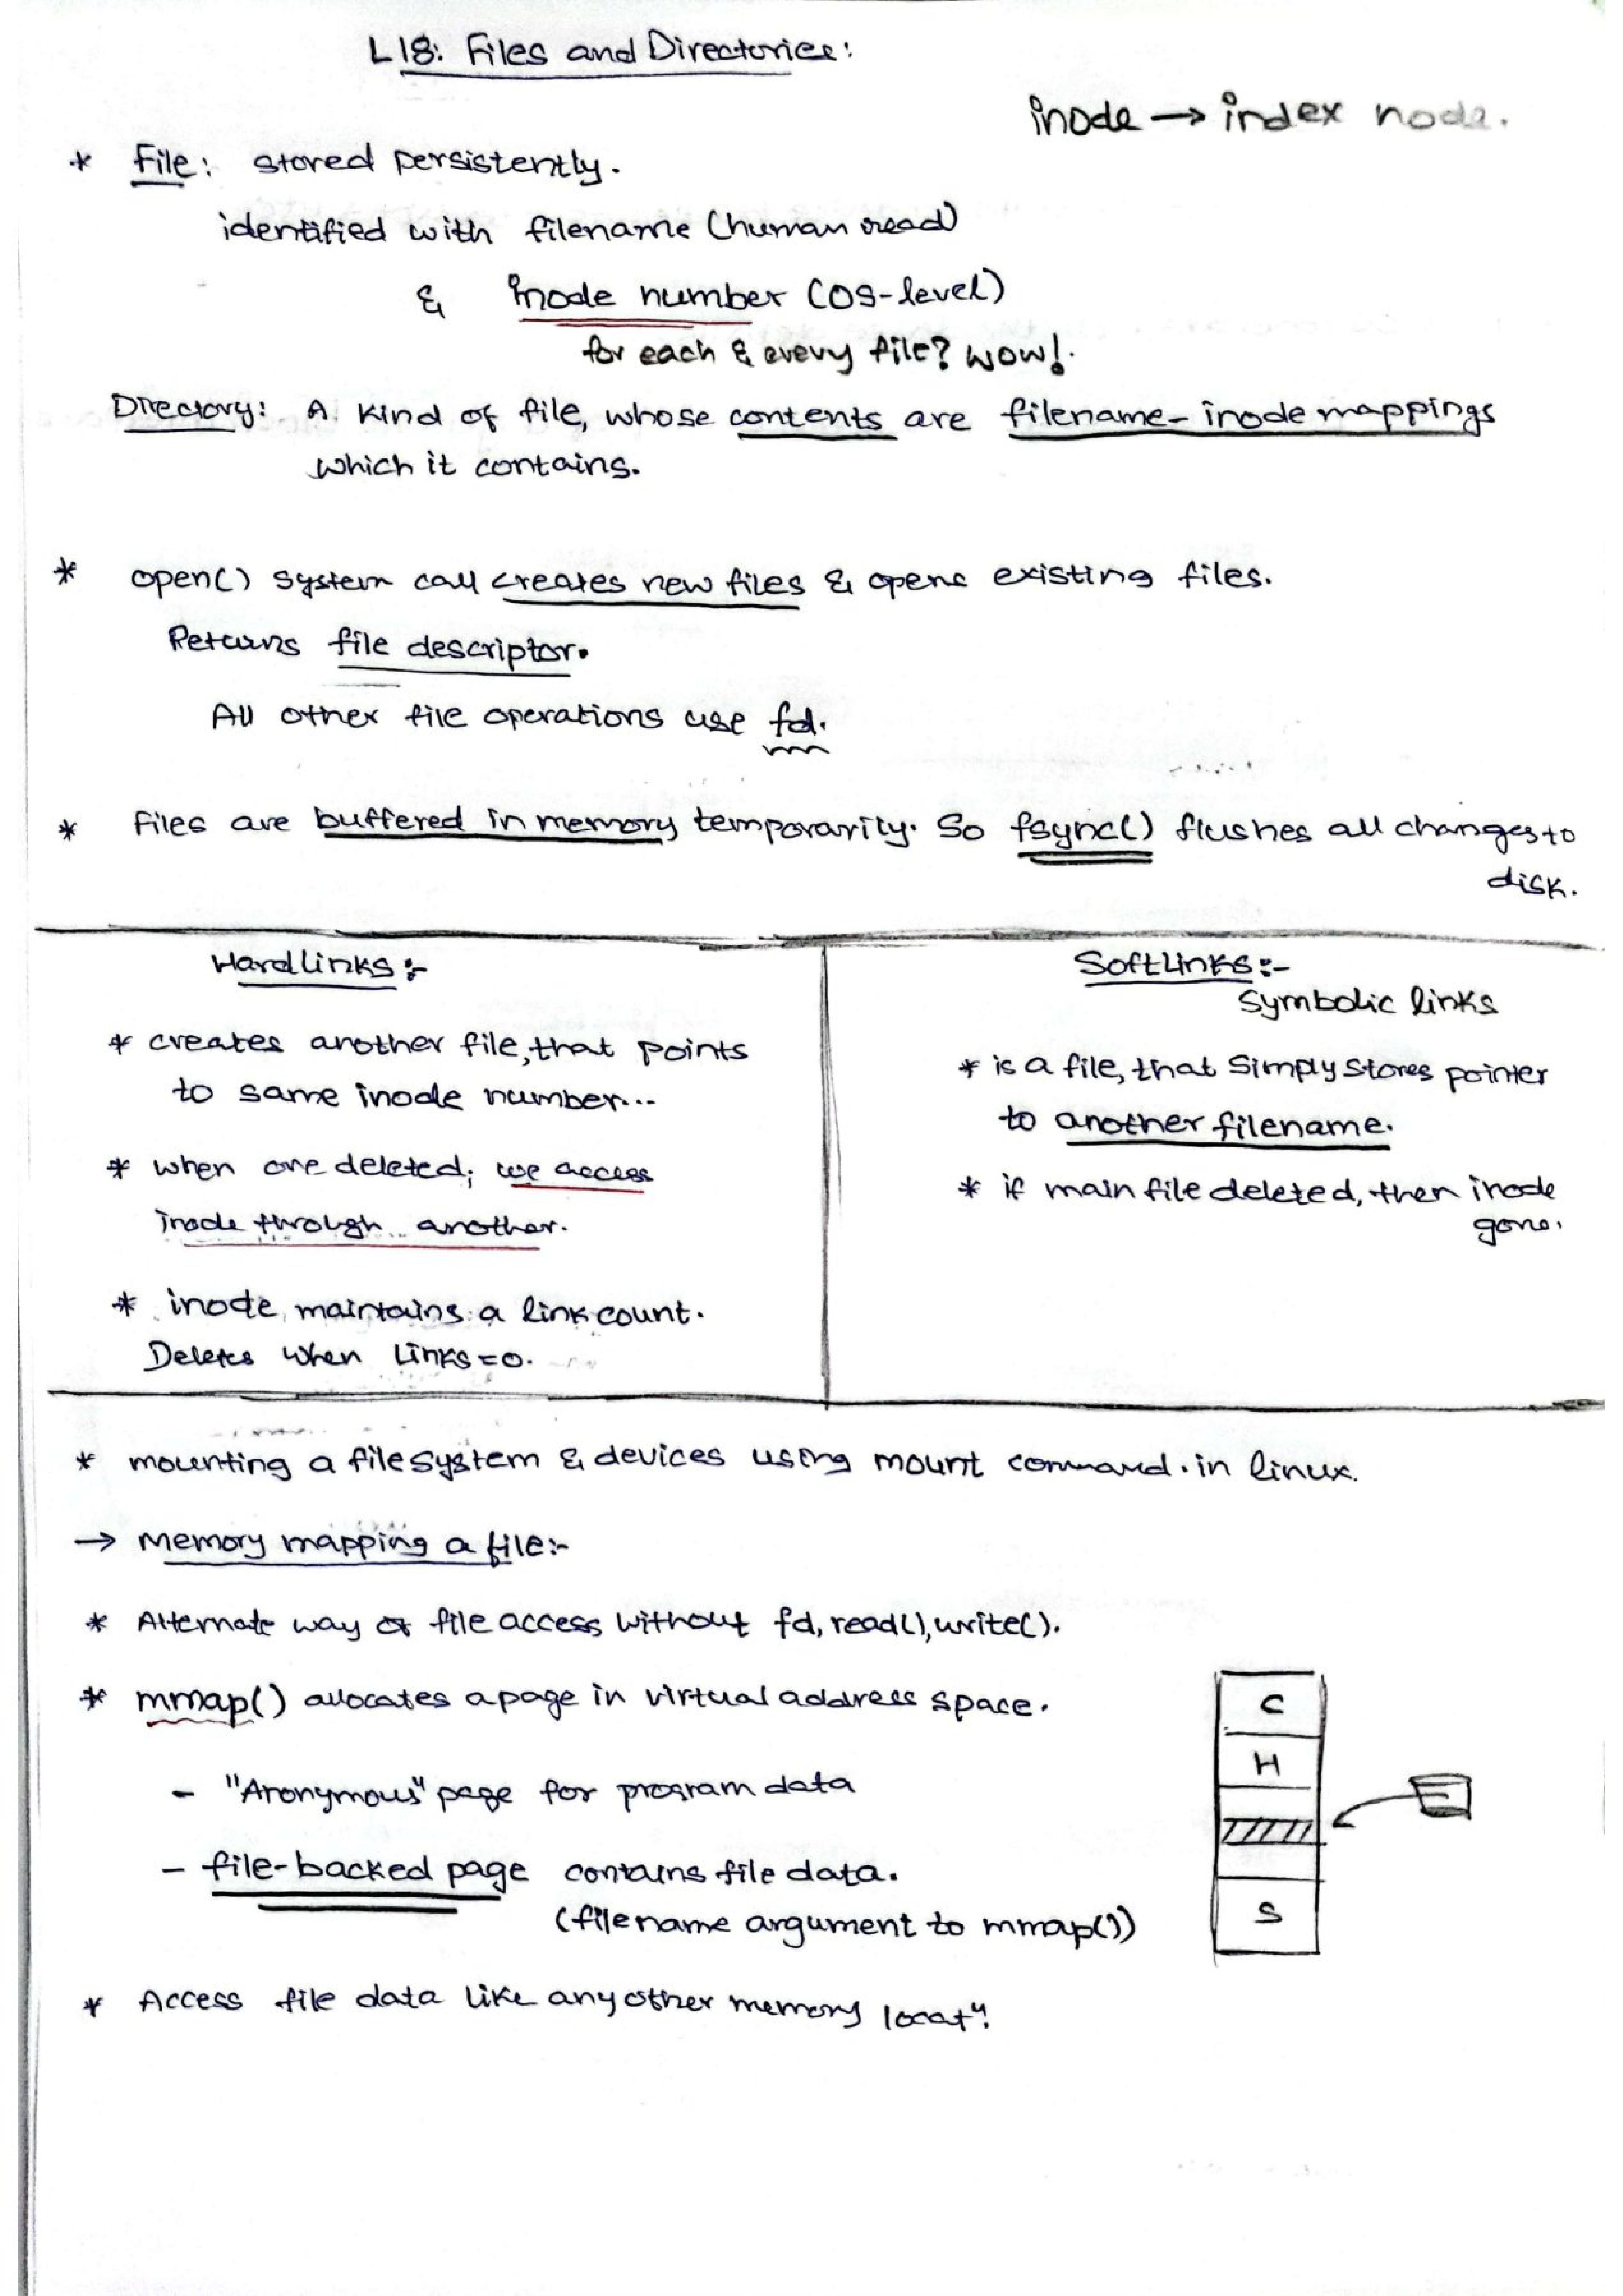 L18: Files and Directories:
inode → index node.
* File: stored persistently.
identified with filename (human read)
& inode number (OS-level)
for each & every file? wow!.
Directory: A kind of file, whose contents are filename-inode mappings
which it contains.
* open() system call creates new files & opens existing files.
Returns file descriptor.
All other file operations use fd.
* Files are buffered in memory temporarity. So fsync() flushes all changes to
disk.
Hardlinks:-
* creates another file, that points
to same inode number...
* when one deleted; we access
inode through another.
* inode maintains a link count.
Deletes when Links=0.
Softlinks:-
Symbolic links
* is a file, that Simply stores pointer
to another filename.
* if main file deleted, then inode
gone.
* mounting a filesystem & devices using mount command. in linux.
→ Memory mapping a file:-
* Alternate way of file access without fd, read(), write().
* mmap() allocates a page in virtual address space.
- "Anonymous" page for program data
- file-backed page contains file data.
(filename argument to mmap())
* Access file data like any other memory locatⁿ.
C
H
S